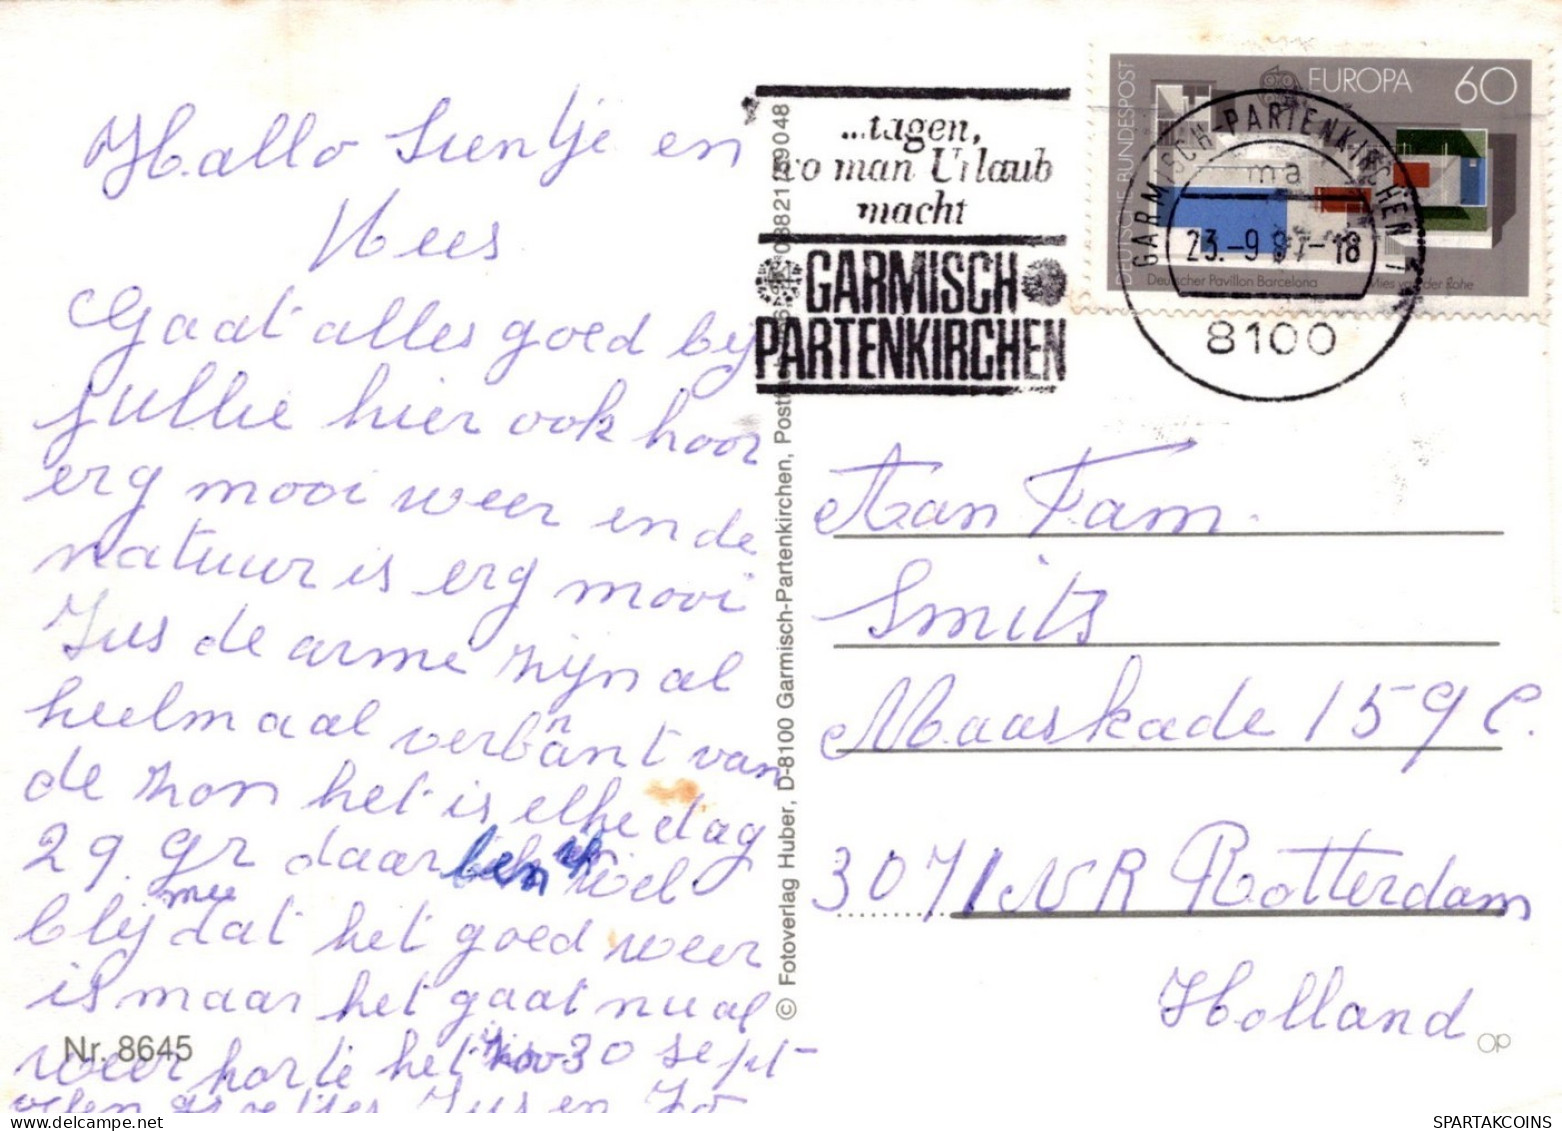 Hallo Sientje en
Kees
Gaat alles goed bij
jullie hier ook hoor
erg mooi weer en de
natuur is erg mooi
Jus de arme zijn al
heelmaal verbrant van
de zon het is elke dag
29. gr daar ben ik wel
blij mee dat het goed weer
is maar het gaat nu al
weer horte het is 30 sept-
velen groetjes Jus en Jo
Nr. 8645
© Fotoverlag Huber, D-8100 Garmisch-Partenkirchen, Postf
08821/59048
...tagen,
wo man Urlaub
macht
GARMISCH
PARTENKIRCHEN
DEUTSCHE BUNDESPOST
EUROPA 60
Deutscher Pavillon Barcelona
Mies van der Rohe
GARMISCH-PARTENKIRCHEN 1
ma
23.-9 87-18
8100
Aan Fam.
Smits
Maaskade 159 C.
3071 NR Rotterdam
Holland
SPARTAKCOINS